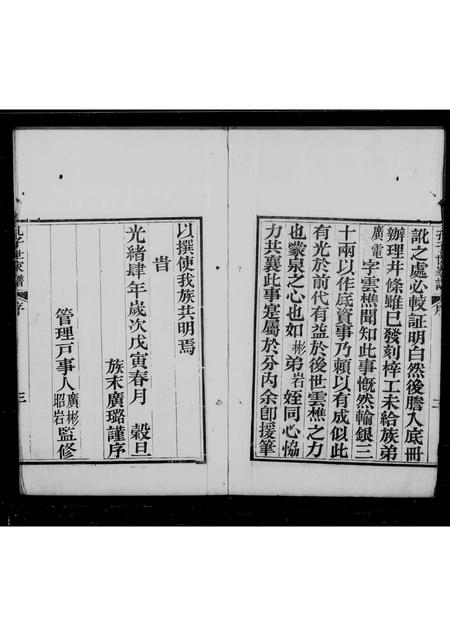 訛之處必較証明白然後謄入底冊
辦理井條雖已發刻梓工未給族弟
廣電字雲樵聞知此事慨然輸銀三
十兩以作底資事乃賴以有成似此
有光於前代有益於後世雲樵之力
也蒙泉之心也如彬弟岩姪同心恊
力共襄此事寔屬於分內余卽援筆
以撰使我族共明焉
旹
光緒肆年歲次戊寅春月 穀旦
族末廣璐謹序
管理戸事人廣彬昭岩監修
孔子世家譜 序 三